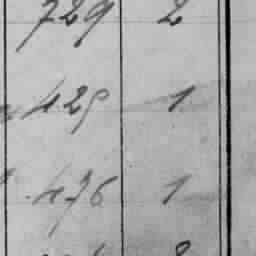 729 2
429 1
476 1